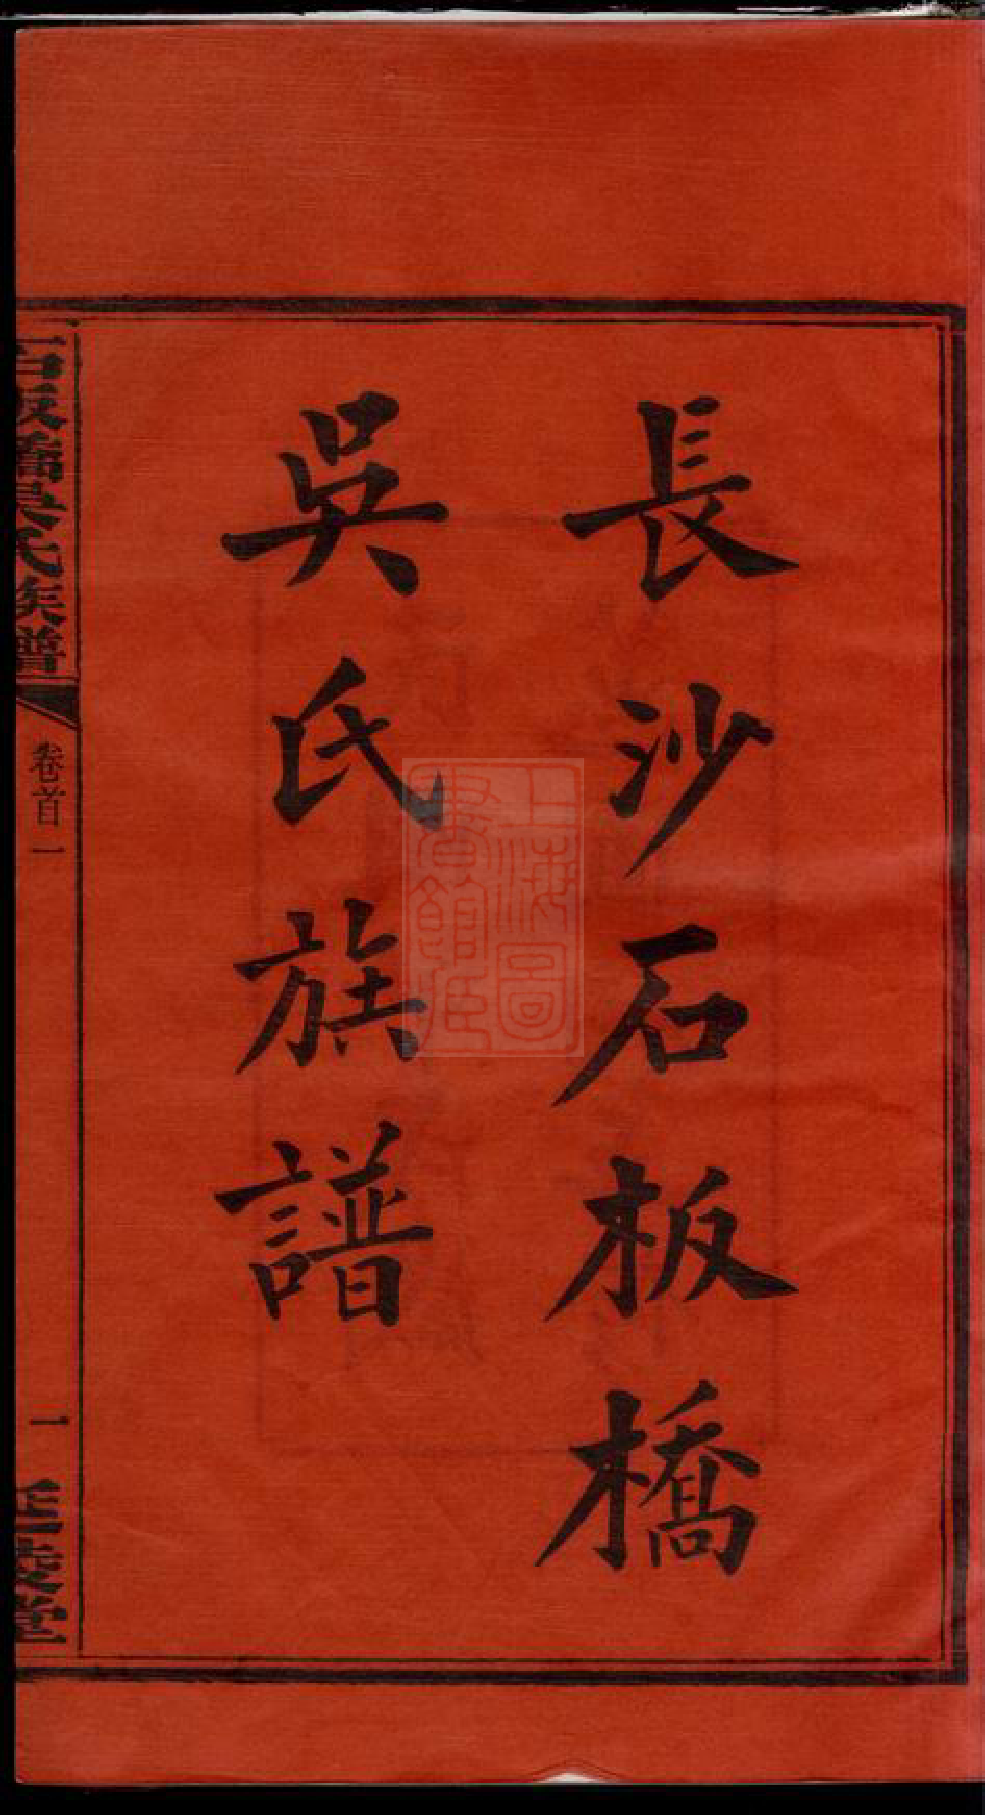 長沙石板橋
吳氏族譜
石板橋吳氏族譜
卷首一
一
上海圖書館藏